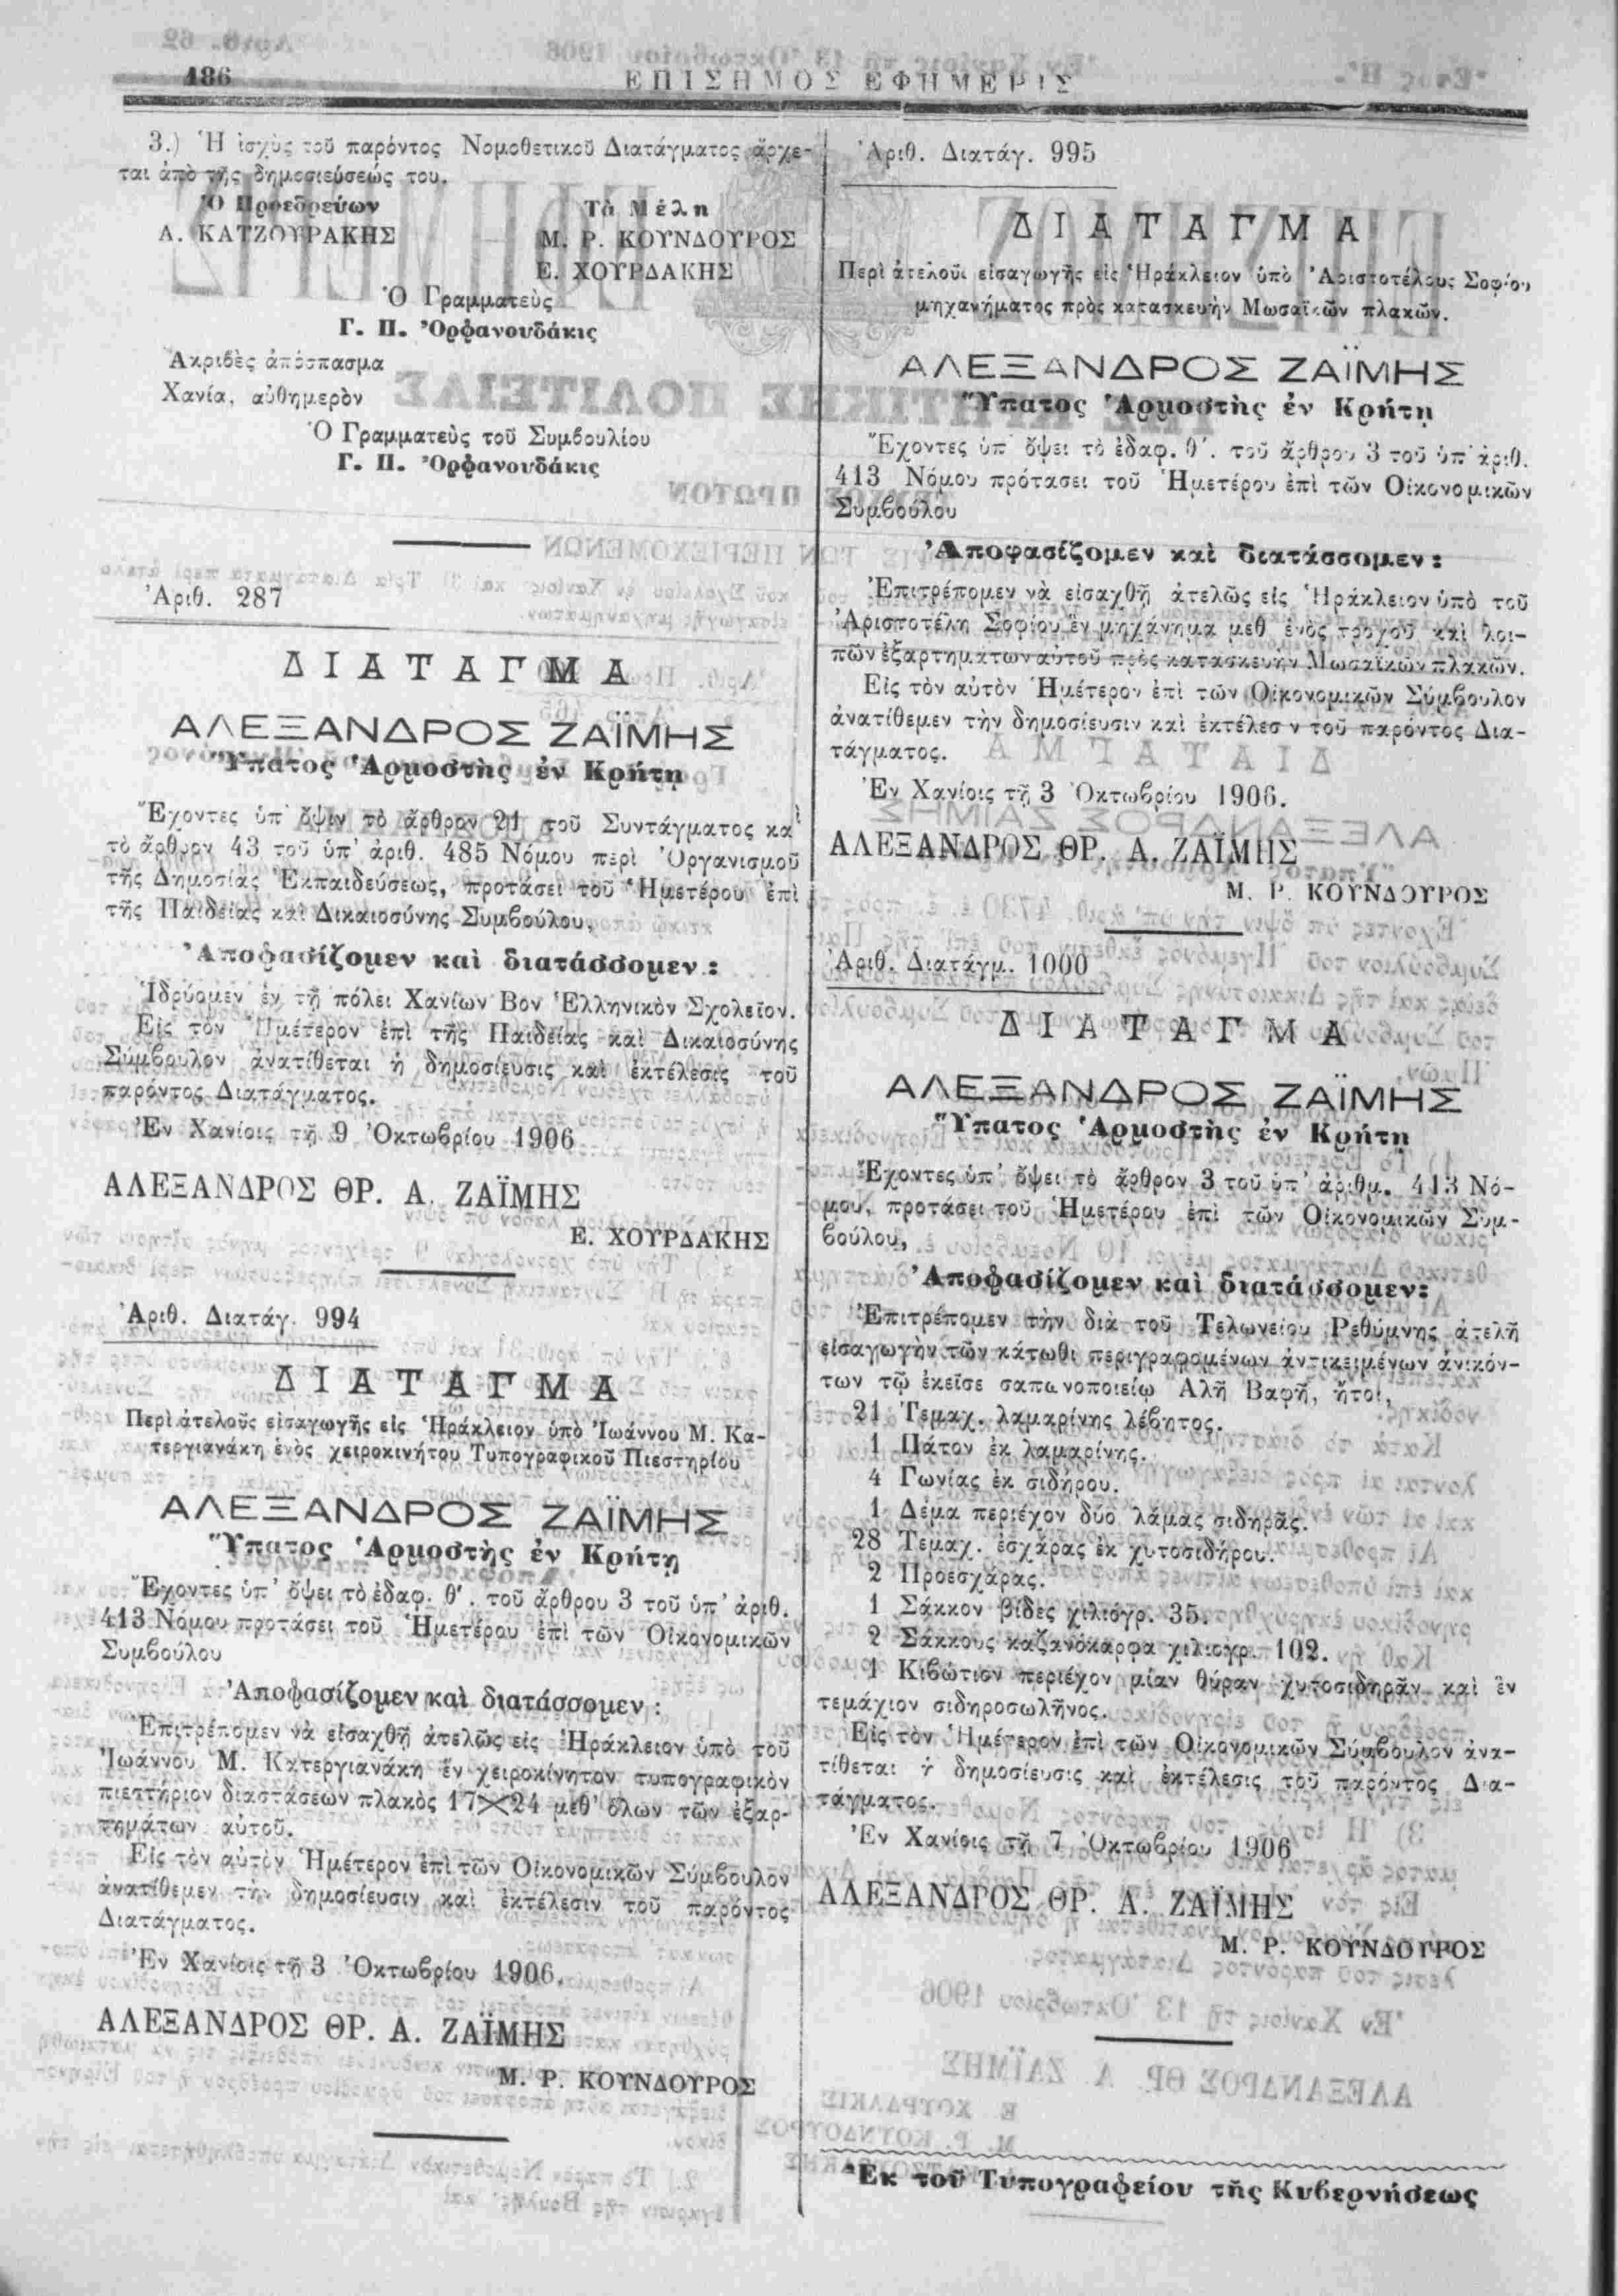 486
ΕΠΙΣΗΜΟΣ ΕΦΗΜΕΡΙΣ
3.) Ἡ ἰσχὺς τοῦ παρόντος Νομοθετικοῦ Διατάγματος ἄρχε-
ται ἀπὸ τῆς δημοσιεύσεώς του.
Ὁ Προεδρεύων
Α. ΚΑΤΖΟΥΡΑΚΗΣ
Τὰ Μέλη
Μ. Ρ. ΚΟΥΝΔΟΥΡΟΣ
Ε. ΧΟΥΡΔΑΚΗΣ
Ὁ Γραμματεὺς
Γ. Π. Ὀρφανουδάκις
Ἀκριβὲς ἀπόσπασμα
Χανία, αὐθημερὸν
Ὁ Γραμματεὺς τοῦ Συμβουλίου
Γ. Π. Ὀρφανουδάκις
Ἀριθ. 287
ΔΙΑΤΑΓΜΑ
ΑΛΕΞΑΝΔΡΟΣ ΖΑΪΜΗΣ
Ὕπατος Ἁρμοστὴς ἐν Κρήτῃ
Ἔχοντες ὑπ' ὄψιν τὸ ἄρθρον 21 τοῦ Συντάγματος καὶ
τὸ ἄρθρον 43 τοῦ ὑπ' ἀριθ. 485 Νόμου περὶ Ὀργανισμοῦ
τῆς Δημοσίας Ἐκπαιδεύσεως, προτάσει τοῦ Ἡμετέρου ἐπὶ
τῆς Παιδείας καὶ Δικαιοσύνης Συμβούλου,
Ἀποφασίζομεν καὶ διατάσσομεν :
Ἱδρύομεν ἐν τῇ πόλει Χανίων Βον Ἑλληνικὸν Σχολεῖον.
Εἰς τὸν Ἡμέτερον ἐπὶ τῆς Παιδείας καὶ Δικαιοσύνης
Σύμβουλον ἀνατίθεται ἡ δημοσίευσις καὶ ἐκτέλεσις τοῦ
παρόντος Διατάγματος.
Ἐν Χανίοις τῇ 9 Ὀκτωβρίου 1906
ΑΛΕΞΑΝΔΡΟΣ ΘΡ. Α. ΖΑΪΜΗΣ
Ε. ΧΟΥΡΔΑΚΗΣ
Ἀριθ. Διατάγ. 994
ΔΙΑΤΑΓΜΑ
Περὶ ἀτελοῦς εἰσαγωγῆς εἰς Ἡράκλειον ὑπὸ Ἰωάννου Μ. Κα-
τεργιανάκη ἑνὸς χειροκινήτου Τυπογραφικοῦ Πιεστηρίου
ΑΛΕΞΑΝΔΡΟΣ ΖΑΪΜΗΣ
Ὕπατος Ἁρμοστὴς ἐν Κρήτῃ
Ἔχοντες ὑπ' ὄψει τὸ ἐδαφ. θ'. τοῦ ἄρθρου 3 τοῦ ὑπ' ἀριθ.
413 Νόμου προτάσει τοῦ Ἡμετέρου ἐπὶ τῶν Οἰκονομικῶν
Συμβούλου
Ἀποφασίζομεν καὶ διατάσσομεν :
Ἐπιτρέπομεν νὰ εἰσαχθῇ ἀτελῶς εἰς Ἡράκλειον ὑπὸ τοῦ
Ἰωάννου Μ. Κατεργιανάκη ἓν χειροκίνητον τυπογραφικὸν
πιεστήριον διαστάσεων πλακὸς 17×24 μεθ' ὅλων τῶν ἐξαρ-
τημάτων αὐτοῦ.
Εἰς τὸν αὐτὸν Ἡμέτερον ἐπὶ τῶν Οἰκονομικῶν Σύμβουλον
ἀνατίθεμεν τὴν δημοσίευσιν καὶ ἐκτέλεσιν τοῦ παρόντος
Διατάγματος.
Ἐν Χανίοις τῇ 3 Ὀκτωβρίου 1906.
ΑΛΕΞΑΝΔΡΟΣ ΘΡ. Α. ΖΑΪΜΗΣ
Μ. Ρ. ΚΟΥΝΔΟΥΡΟΣ
Ἀριθ. Διατάγ. 995
ΔΙΑΤΑΓΜΑ
Περὶ ἀτελοῦς εἰσαγωγῆς εἰς Ἡράκλειον ὑπὸ Ἀριστοτέλους Σοφίου
μηχανήματος πρὸς κατασκευὴν Μωσαϊκῶν πλακῶν.
ΑΛΕΞΑΝΔΡΟΣ ΖΑΪΜΗΣ
Ὕπατος Ἁρμοστὴς ἐν Κρήτῃ
Ἔχοντες ὑπ' ὄψει τὸ ἐδαφ. θ'. τοῦ ἄρθρου 3 τοῦ ὑπ' ἀριθ.
413 Νόμου πρότασει τοῦ Ἡμετέρου ἐπὶ τῶν Οἰκονομικῶν
Συμβούλου
Ἀποφασίζομεν καὶ διατάσσομεν :
Ἐπιτρέπομεν νὰ εἰσαχθῇ ἀτελῶς εἰς Ἡράκλειον ὑπὸ τοῦ
Ἀριστοτέλη Σοφίου ἓν μηχάνημα μεθ' ἑνὸς τροχοῦ καὶ λοι-
πῶν ἐξαρτημάτων αὐτοῦ πρὸς κατασκευὴν Μωσαϊκῶν πλακῶν.
Εἰς τὸν αὐτὸν Ἡμέτερον ἐπὶ τῶν Οἰκονομικῶν Σύμβουλον
ἀνατίθεμεν τὴν δημοσίευσιν καὶ ἐκτέλεσιν τοῦ παρόντος Δια-
τάγματος.
Ἐν Χανίοις τῇ 3 Ὀκτωβρίου 1906.
ΑΛΕΞΑΝΔΡΟΣ ΘΡ. Α. ΖΑΪΜΗΣ
Μ. Ρ. ΚΟΥΝΔΟΥΡΟΣ
Ἀριθ. Διατάγμ. 1000
ΔΙΑΤΑΓΜΑ
ΑΛΕΞΑΝΔΡΟΣ ΖΑΪΜΗΣ
Ὕπατος Ἁρμοστὴς ἐν Κρήτῃ
Ἔχοντες ὑπ' ὄψει τὸ ἄρθρον 3 τοῦ ὑπ' ἀριθμ. 413 Νό-
μου, προτάσει τοῦ Ἡμετέρου ἐπὶ τῶν Οἰκονομικῶν Συμ-
βούλου,
Ἀποφασίζομεν καὶ διατάσσομεν:
Ἐπιτρέπομεν τὴν διὰ τοῦ Τελωνείου Ρεθύμνης ἀτελῆ
εἰσαγωγὴν τῶν κάτωθι περιγραφομένων ἀντικειμένων ἀνικόν-
των τῷ ἐκεῖσε σαπωνοποιείῳ Ἀλῆ Βαφῆ, ἤτοι,
21 Τεμαχ. λαμαρίνης λέβητος.
1 Πάτον ἐκ λαμαρίνης.
4 Γωνίας ἐκ σιδήρου.
1 Δέμα περιέχον δύο λάμας σιδηρᾶς.
28 Τεμαχ. ἐσχάρας ἐκ χυτοσιδήρου.
2 Προεσχάρας.
1 Σάκκον βίδες χιλιόγρ. 35.
2 Σάκκους καζανόκαρφα χιλιογρ. 102.
1 Κιβώτιον περιέχον μίαν θύραν χυτοσιδηρᾶν καὶ ἓν
τεμάχιον σιδηροσωλῆνος.
Εἰς τὸν Ἡμέτερον ἐπὶ τῶν Οἰκονομικῶν Σύμβουλον ἀνα-
τίθεται ἡ δημοσίευσις καὶ ἐκτέλεσις τοῦ παρόντος Δια-
τάγματος.
Ἐν Χανίοις τῇ 7 Ὀκτωβρίου 1906
ΑΛΕΞΑΝΔΡΟΣ ΘΡ. Α. ΖΑΪΜΗΣ
Μ. Ρ. ΚΟΥΝΔΟΥΡΟΣ
Ἐκ τοῦ Τυπογραφείου τῆς Κυβερνήσεως